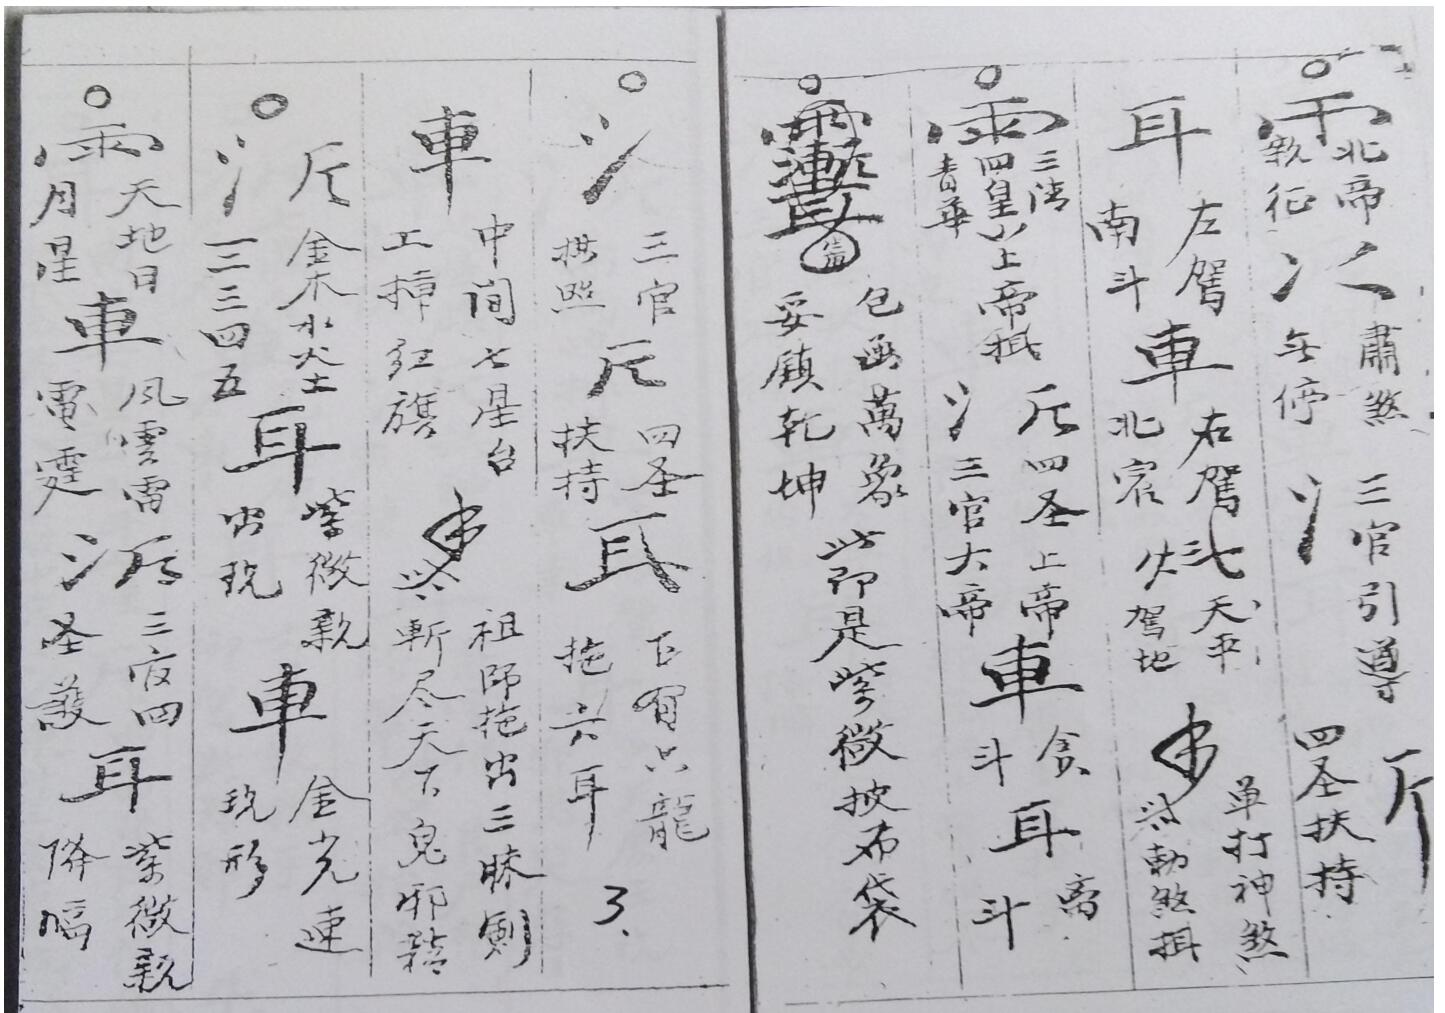 北帝
親征
肅煞
無停
三官引導
四圣扶持
斤
耳
左駕
南斗
車
右駕
北宸
天平
駕地
单打神煞
勅煞
雨
三清
四皇
青華
上帝
斤
四圣上帝
三官大帝
車
貪
斗
耳
斗
包函萬象
妥鎮乾坤
此即是紫微披布袋
三官
拱照
斤
四圣
扶持
耳
下有六龍
拖六耳
3、
車
中间七星台
工掉红旗
祖師拖出三膝劍
斬尽天下鬼邪精
斤
金木水火土
一二三四五
耳
紫微親
出現
車
金光速
現形
雨
天地日
月星
車
風雲雷
電霆
斤
三官四
圣護
耳
紫微親
降臨